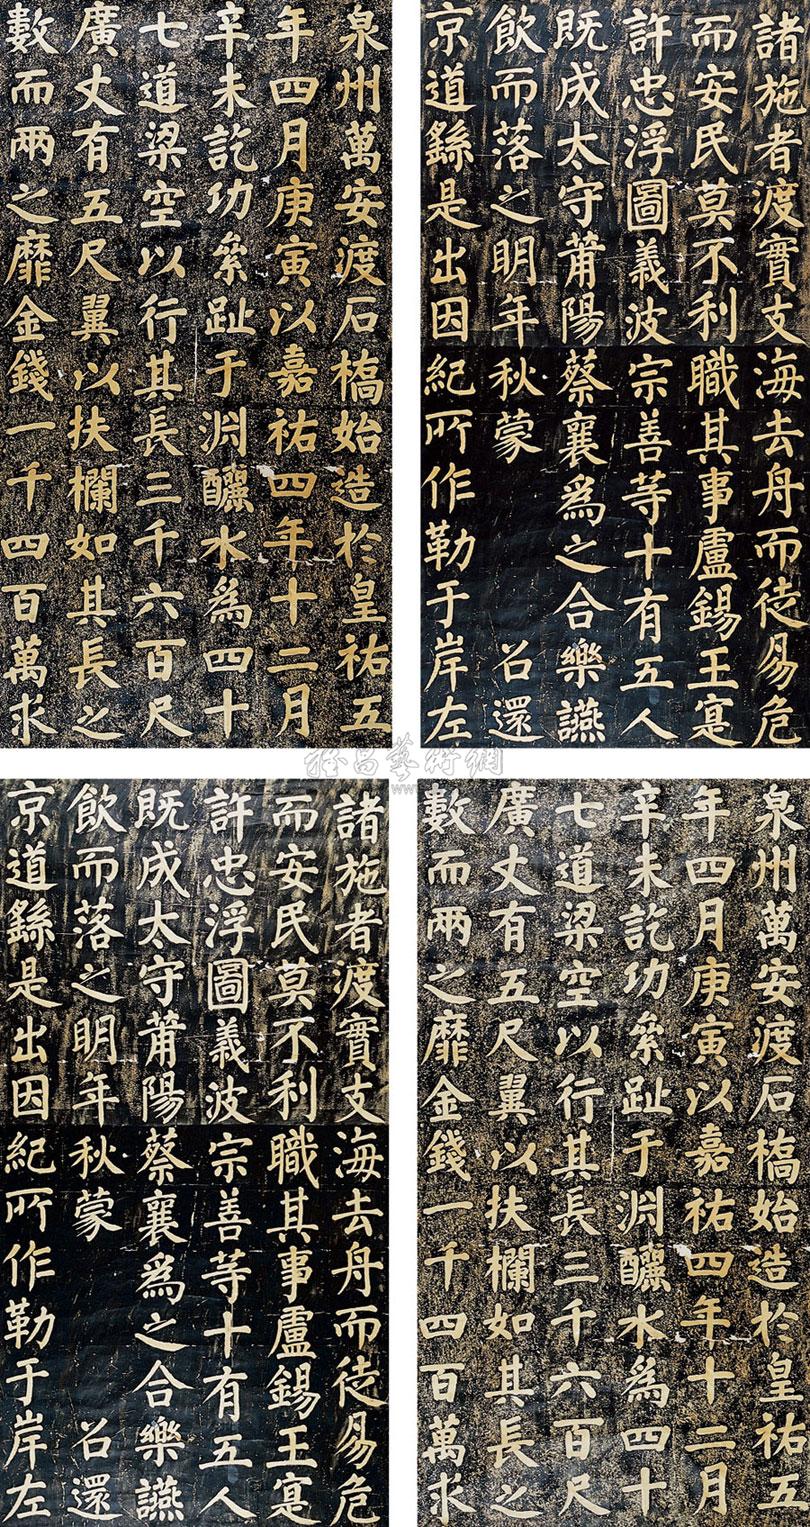 泉州萬安渡石橋始造於皇祐五
年四月庚寅以嘉祐四年十二月
辛未訖功絫趾于淵釃水為四十
七道梁空以行其長三千六百尺
廣丈有五尺翼以扶欄如其長之
數而兩之靡金錢一千四百萬求
諸施者渡實支海去舟而徒易危
而安民莫不利職其事盧錫王寔
許忠浮圖義波宗善等十有五人
既成太守莆陽蔡襄爲之合樂讌
飲而落之明年秋蒙 召還
京道繇是出因紀所作勒于岸左
雅昌藝術網
諸施者渡實支海去舟而徒易危
而安民莫不利職其事盧錫王寔
許忠浮圖義波宗善等十有五人
既成太守莆陽蔡襄爲之合樂讌
飲而落之明年秋蒙 召還
京道繇是出因紀所作勒于岸左
泉州萬安渡石橋始造於皇祐五
年四月庚寅以嘉祐四年十二月
辛未訖功絫趾于淵釃水為四十
七道梁空以行其長三千六百尺
廣丈有五尺翼以扶欄如其長之
數而兩之靡金錢一千四百萬求